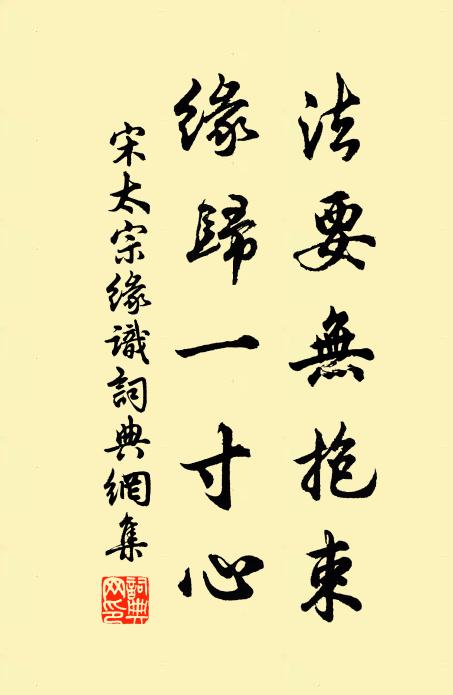 法要無抱束
緣歸一寸心
宋太宗緣識詞典網集
詞典网印